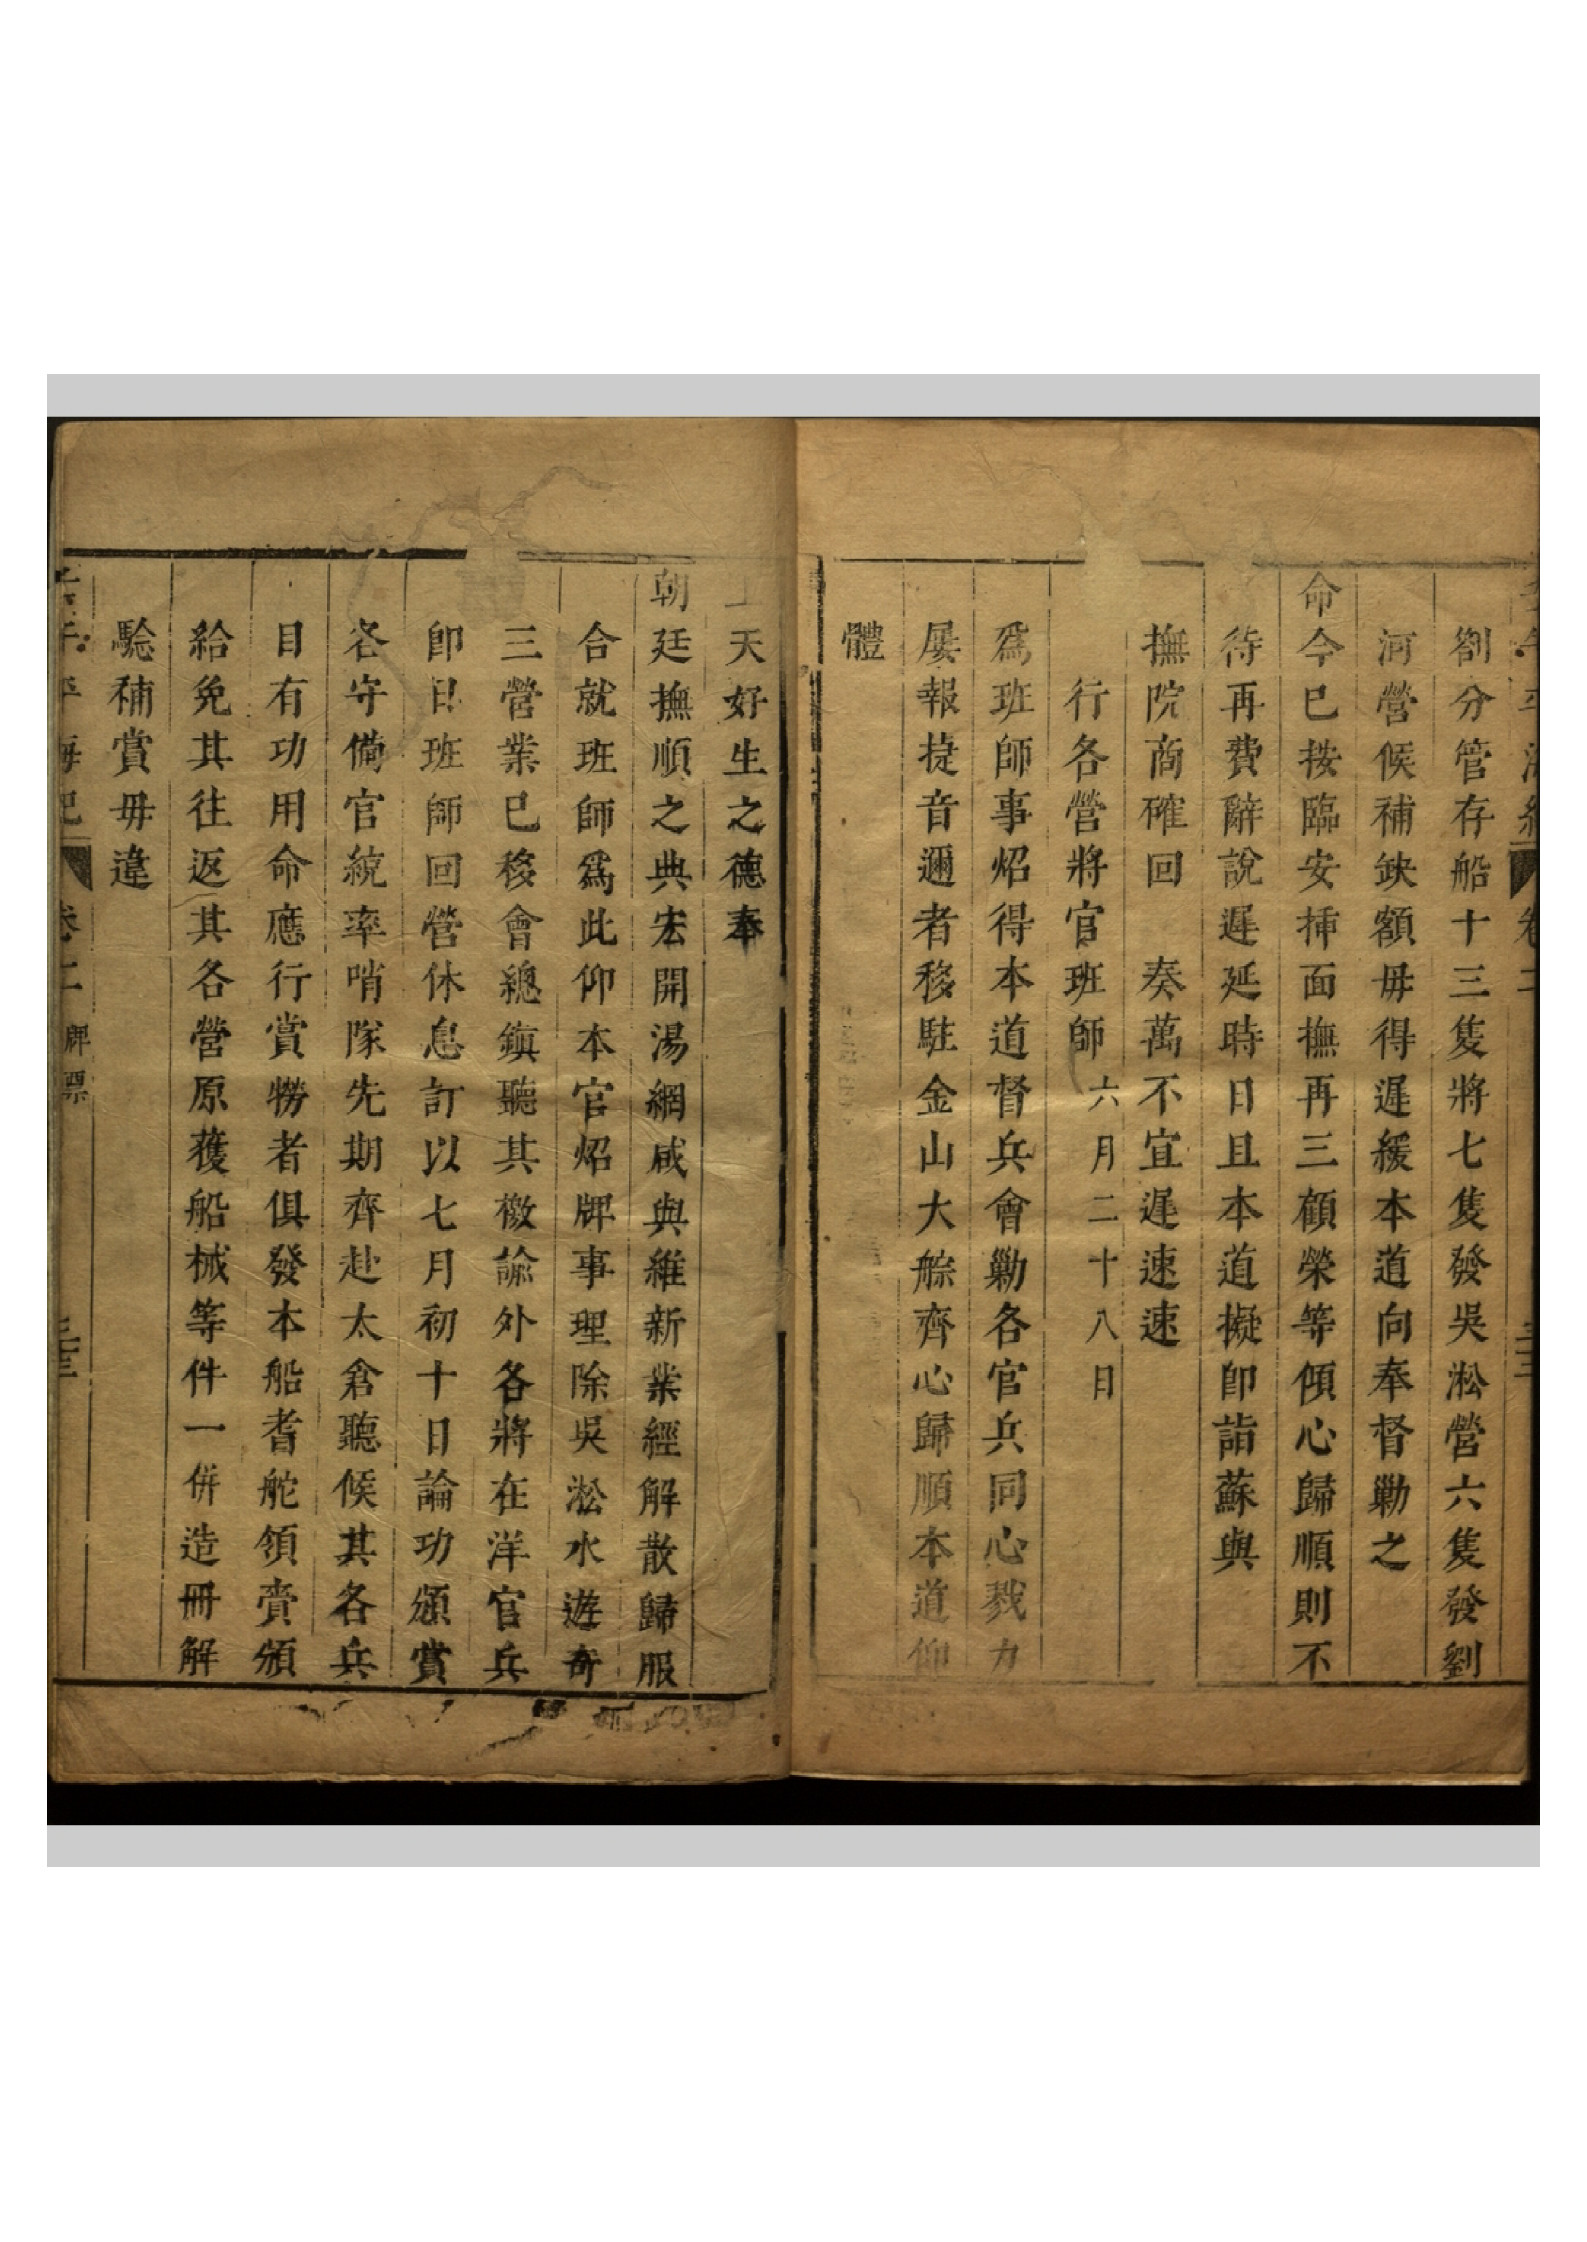 劄分管存船十三隻將七隻發吳淞營六隻發劉
河營候補缺額毋得遲緩本道向奉督勦之
命今已按臨安揷面撫再三顧榮等傾心歸順則不
待再費辭說遲延時日且本道擬卽詣蘇與
撫院商確回　奏萬不宜遲速速
行各營將官班師六月二十八日
爲班師事炤得本道督兵會勦各官兵同心戮力
屢報捷音邇者移駐金山大䑸齊心歸順本道仰
體
上天好生之德奉
朝廷撫順之典宏開湯網咸與維新業經解散歸服
合就班師爲此仰本官炤牌事理除吳淞水遊奇
三營業已移會總鎭聽其檄諭外各將在洋官兵
卽日班師回營休息訂以七月初十日論功頒賞
各守備官統率哨隊先期齊赴太倉聽候其各兵
目有功用命應行賞犒者俱發本船耆舵領賫頒
給免其往返其各營原獲船械等件一併造冊解
騐補賞毋違
平海紀
卷二
牌票